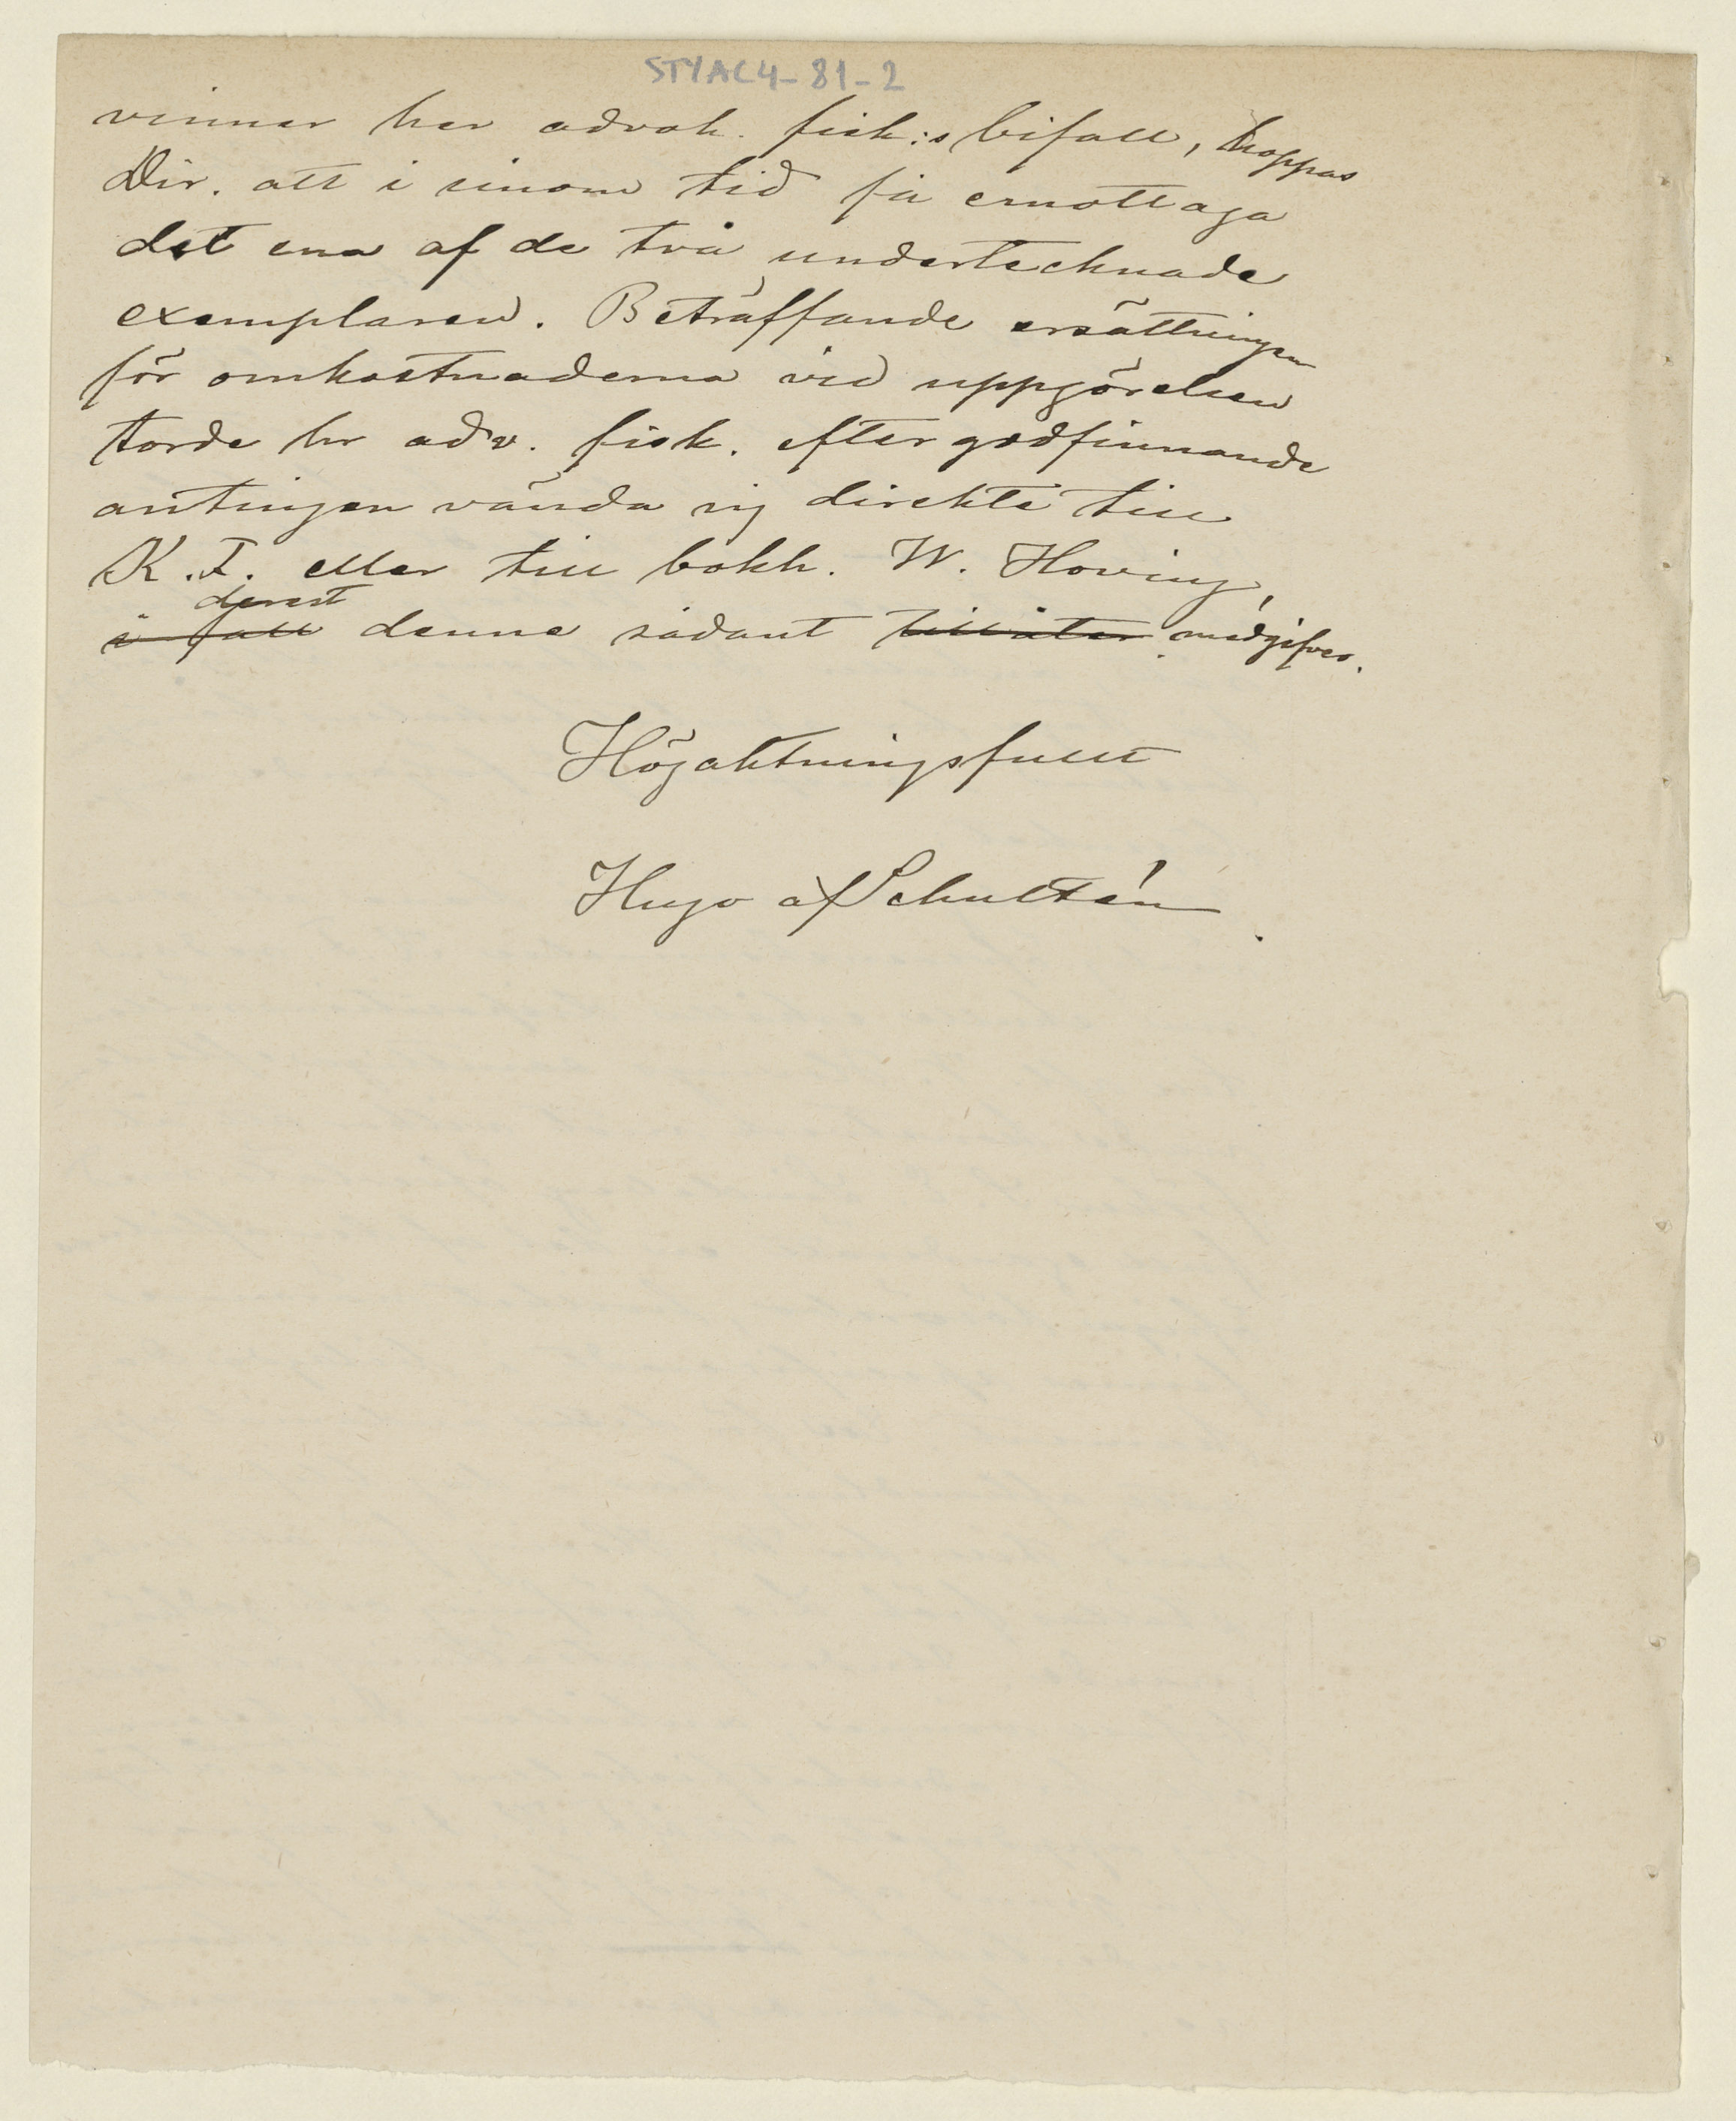 STYAC4-81-2
vinner her advok. fisk:s bifall, hoppas
Dir. att i sinom tid få emottaga
det ena af de två undertecknade
exemplaren. Beträffande ersättningen
för omkostnaderna vid uppgörelsen
torde hr adv. fisk. efter godfinnande
antingen vända sig direkte till
K. F. eller till bokh. W. Hoving,
derest
i fall denne sådant tillåter medgifver.
Högaktningsfullt
Hugo af Schultén